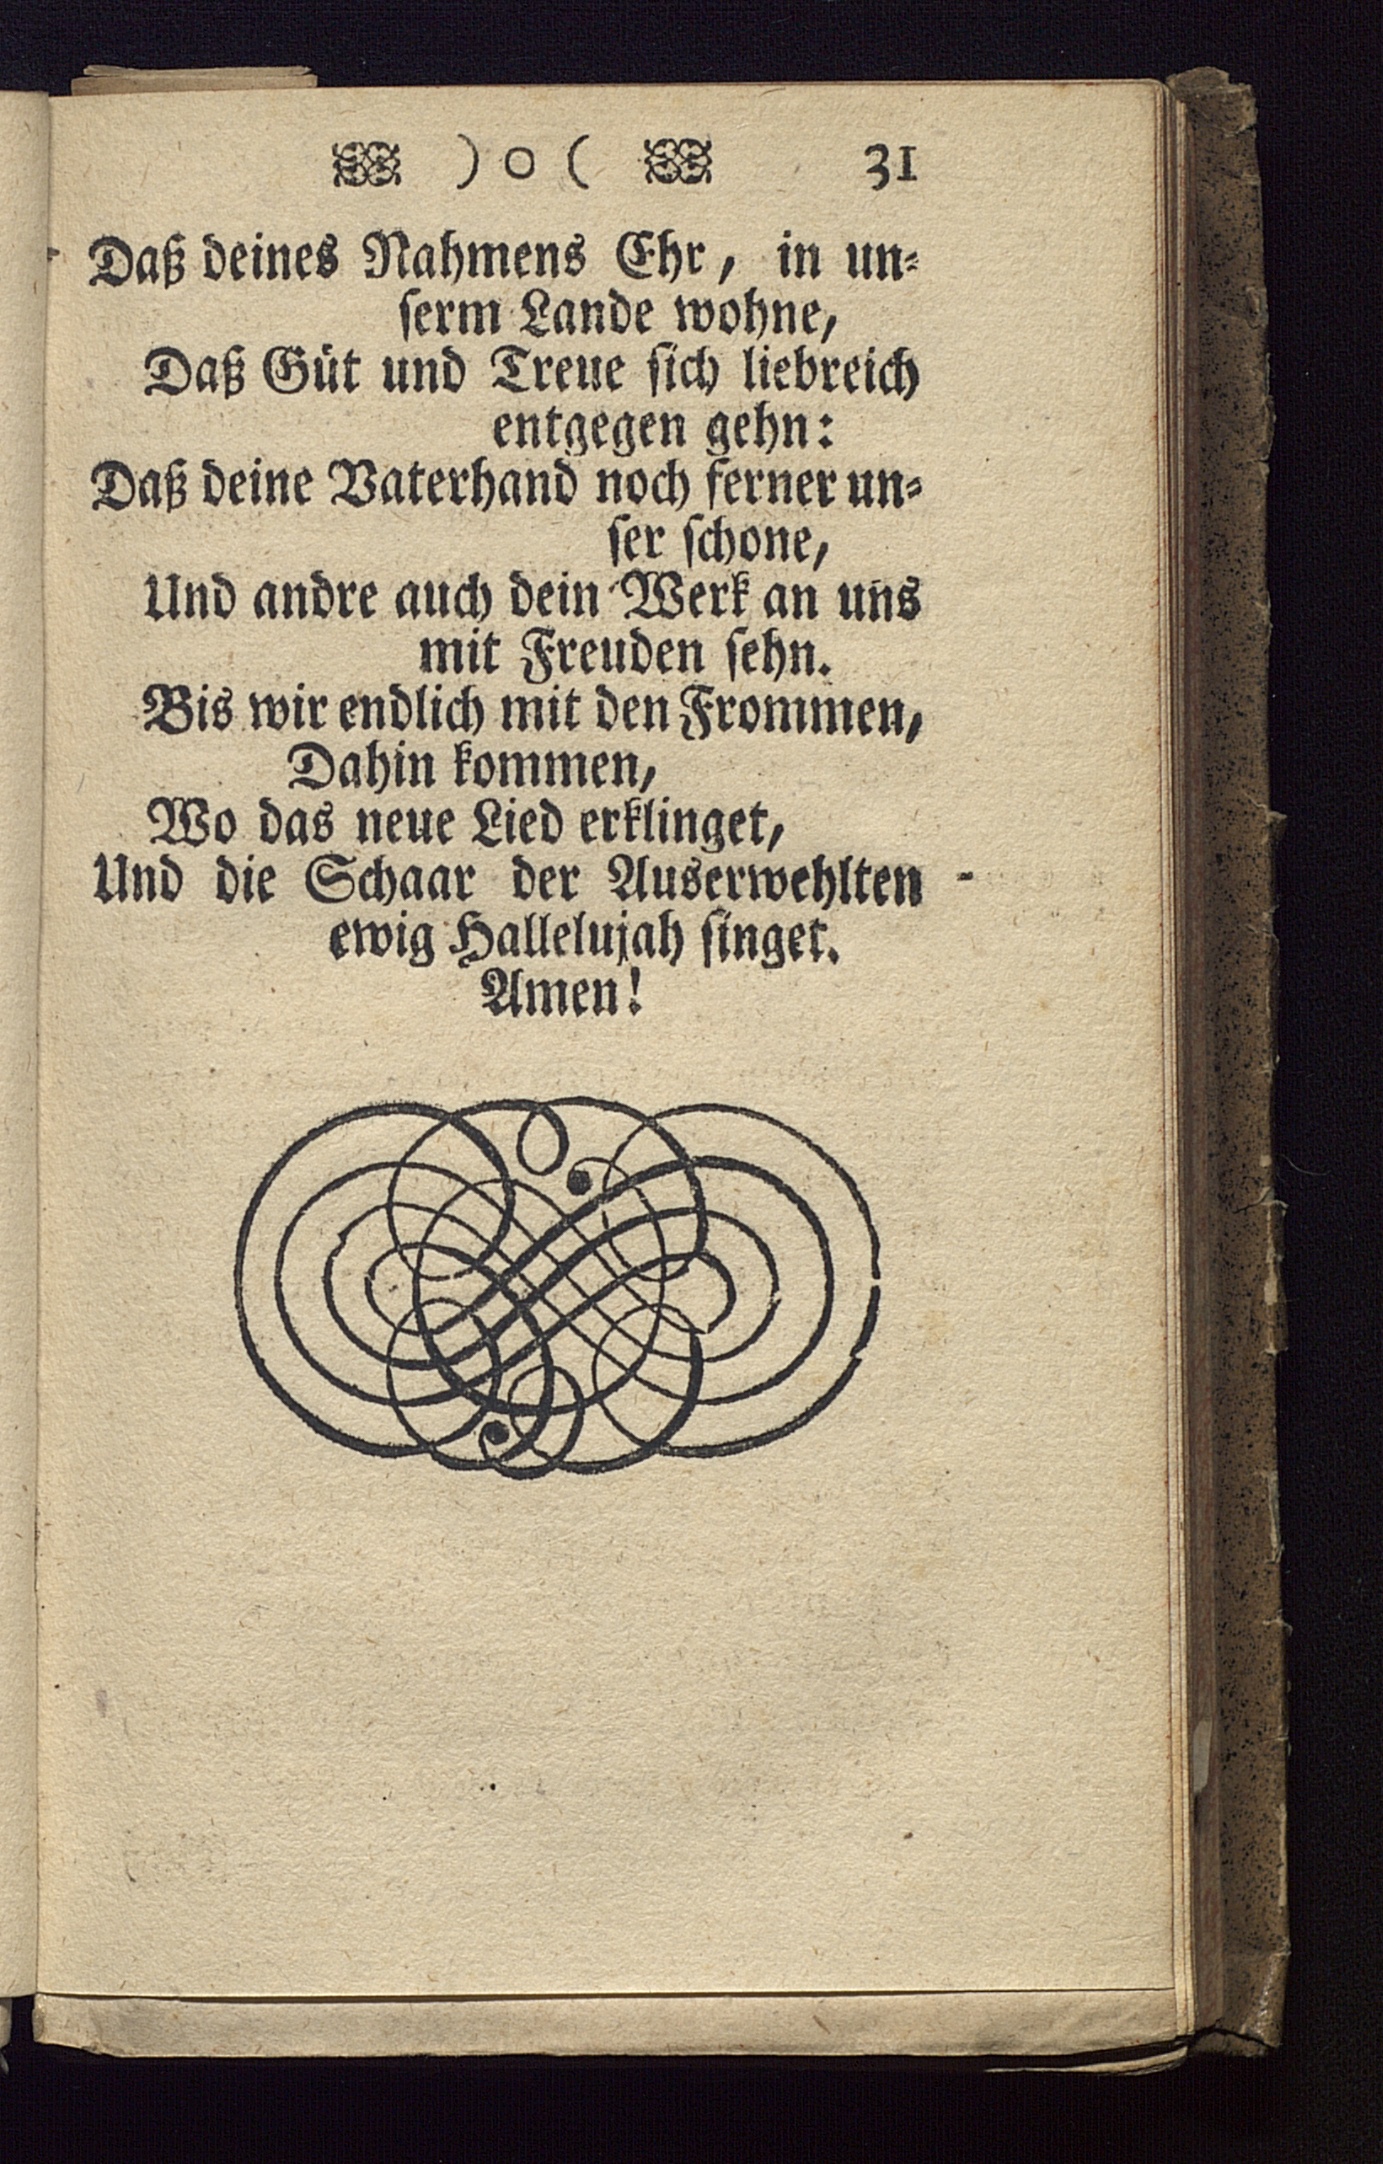 ) o ( 31
Daß deines Nahmens Ehr, in un⸗
ſerm Lande wohne,
Daß Güt und Treue ſich liebreich
entgegen gehn:
Daß deine Vaterhand noch ferner un⸗
ſer ſchone,
Und andre auch dein Werk an uns
mit Freuden ſehn.
Bis wir endlich mit den Frommen,
Dahin kommen,
Wo das neue Lied erklinget,
Und die Schaar der Auserwehlten
ewig Hallelujah ſinget.
Amen!